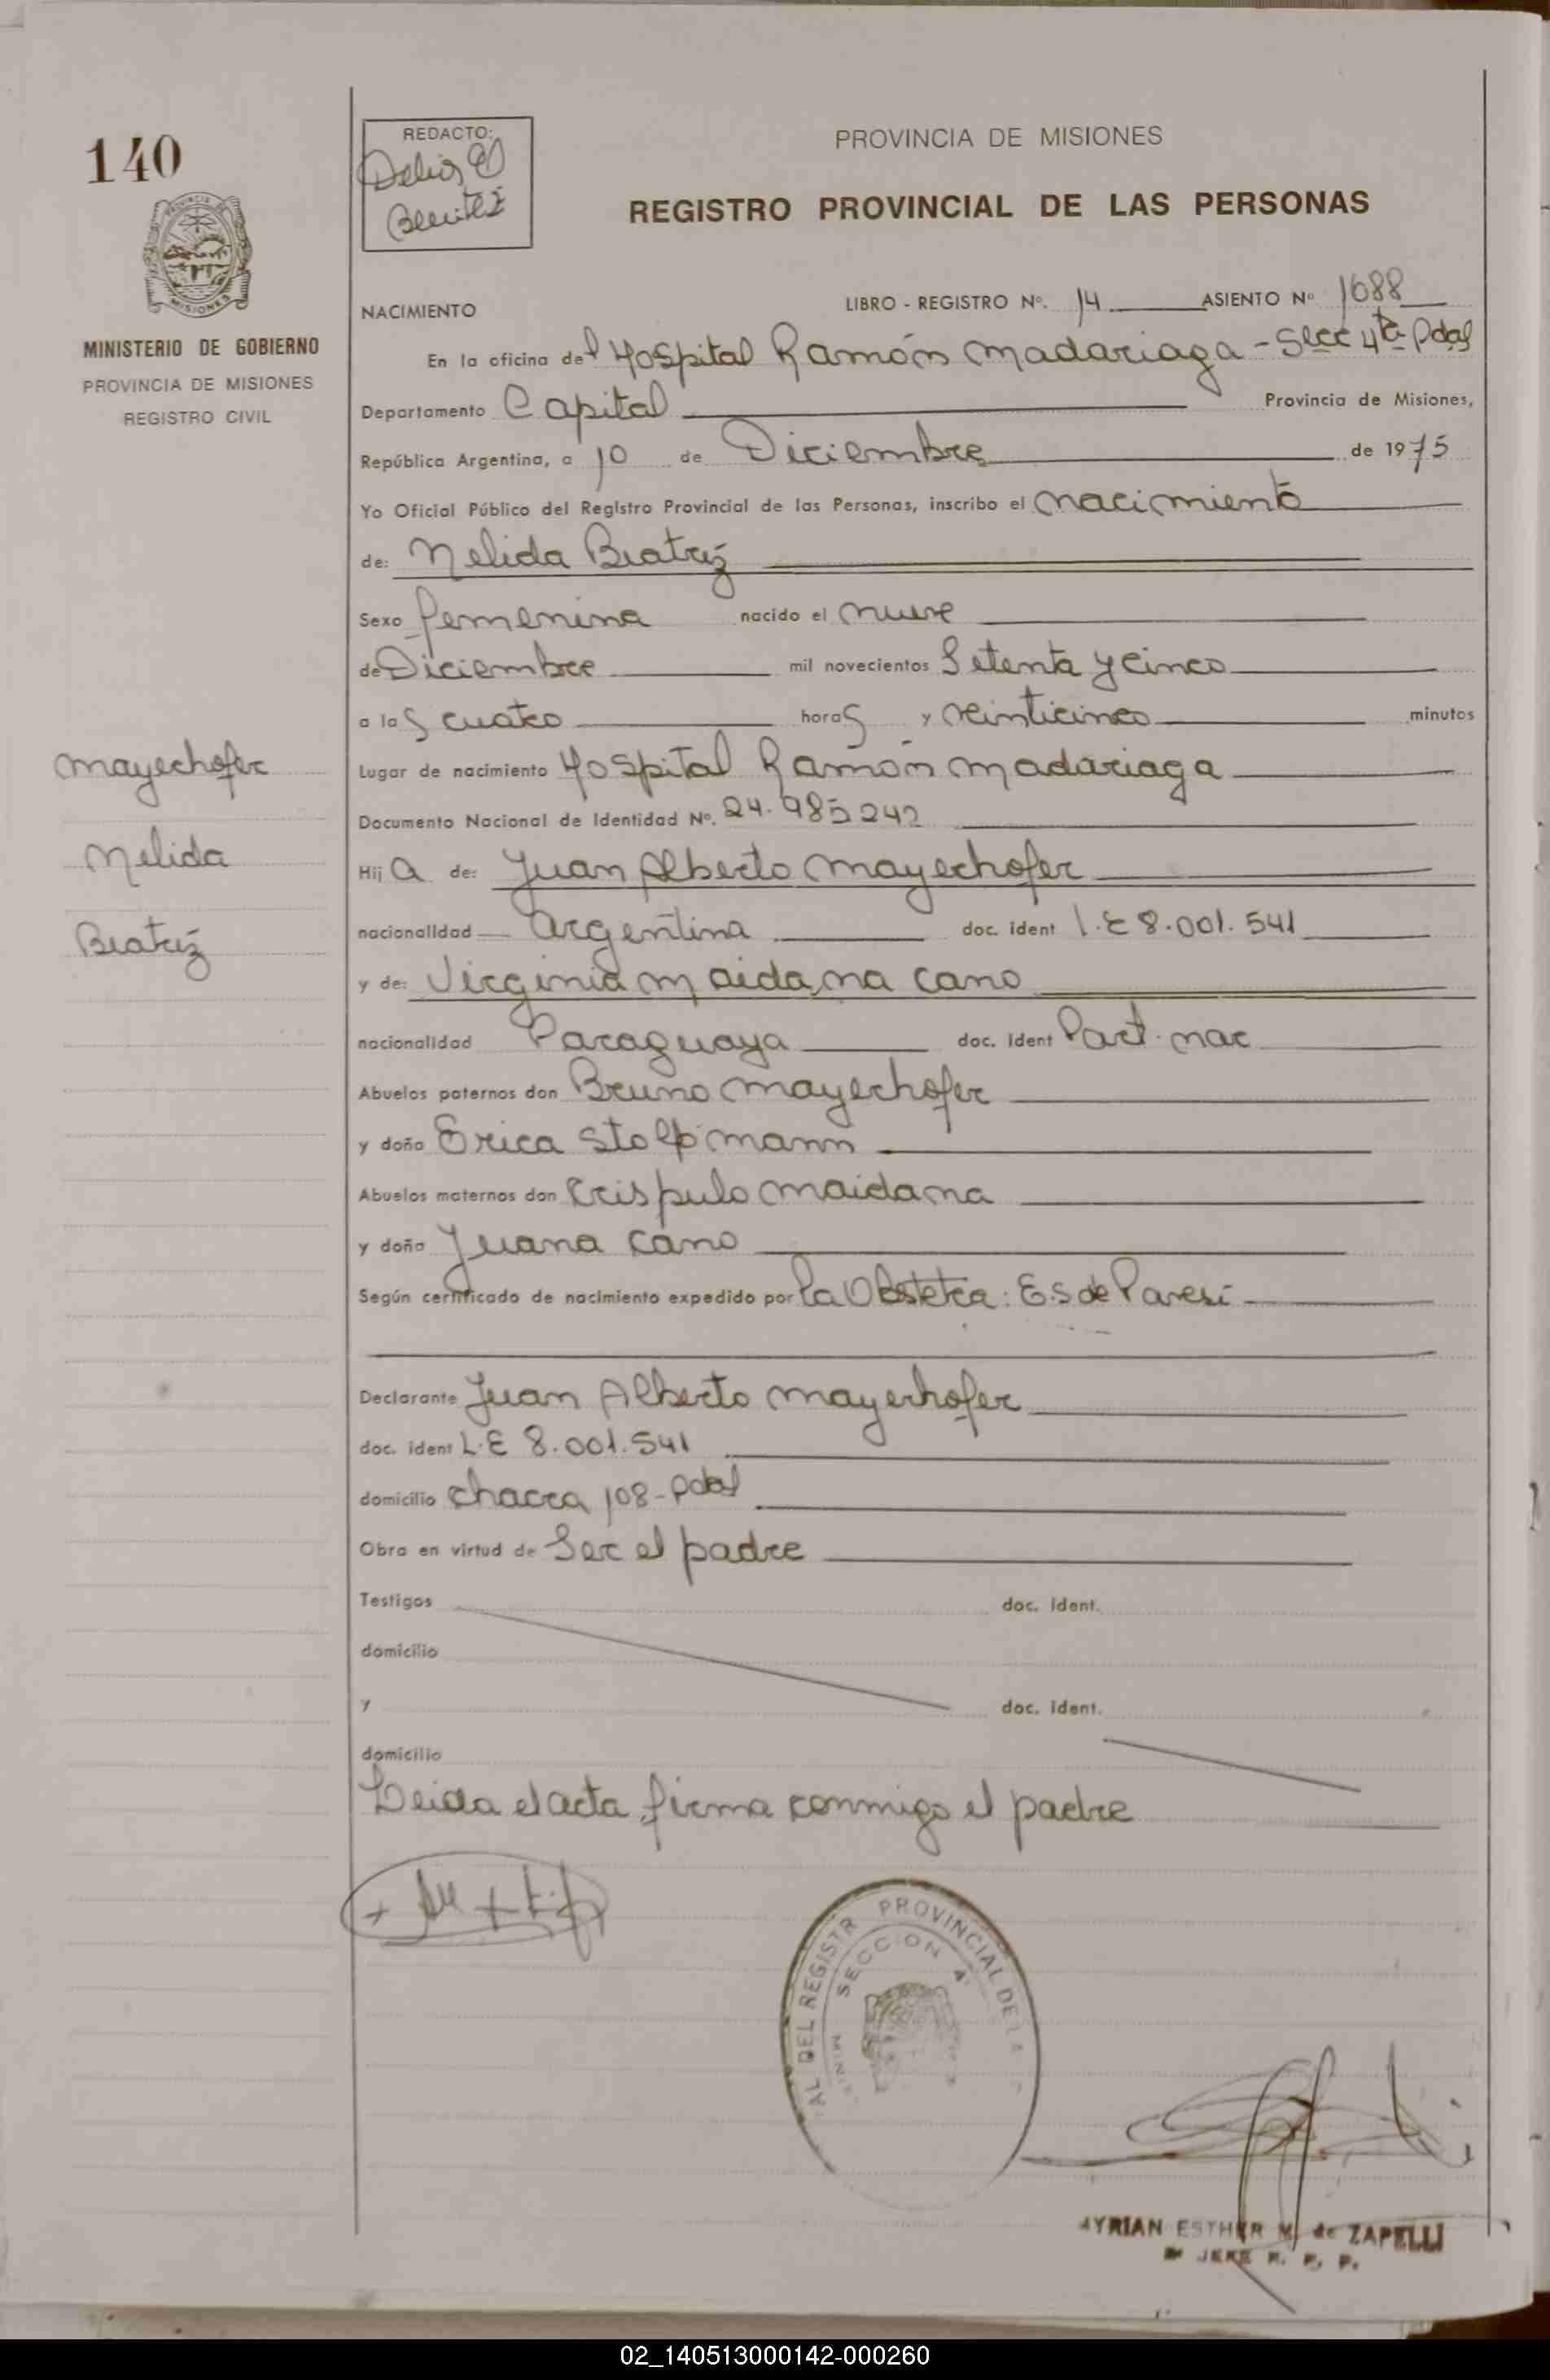 140
REDACTO:
Delia E
Benitez
PROVINCIA DE MISIONES
REGISTRO PROVINCIAL DE LAS PERSONAS
MISIONES
MINISTERIO DE GOBIERNO
PROVINCIA DE MISIONES
REGISTRO CIVIL
NACIMIENTO LIBRO - REGISTRO Nº. 14 ASIENTO Nº 1688
En la oficina del Hospital Ramón Madariaga - Secc 4ta Pdas
Departamento Capital Provincia de Misiones,
República Argentina, a 10 de Diciembre de 1975
Yo Oficial Público del Registro Provincial de las Personas, inscribo el nacimiento
de: Nelida Beatriz
Sexo femenina nacido el nueve
de Diciembre mil novecientos Setenta y cinco
a las cuatro horas y veinticinco minutos
Lugar de nacimiento Hospital Ramón Madariaga
Documento Nacional de Identidad Nº. 24.985242
Hija de: Juan Alberto Mayerhofer
nacionalidad argentina doc. ident L.E 8.001.541
y de: Virginia Maidana Cano
nacionalidad Paraguaya doc. ident Part. nac
Abuelos paternos don Bruno Mayerhofer
y doña Erica Stolpmann
Abuelos maternos don Crispulo Maidana
y doña Juana Cano
Según certificado de nacimiento expedido por la Obstetra: E.S de Paresi
Declarante Juan Alberto Mayerhofer
doc. ident L.E 8.001.541
domicilio chacra 108 - Pdas
Obra en virtud de Ser el padre
Testigos doc. ident.
domicilio
y doc. ident.
domicilio
Leida el acta, firma conmigo el padre
Mayerhofer
Nelida
Beatriz
AL DEL REGISTR PROVINCIAL DE LA
SECCION 4ª
MINI
MYRIAN ESTHER M. de ZAPELLI
JEFE R. P. P.
02_140513000142-000260